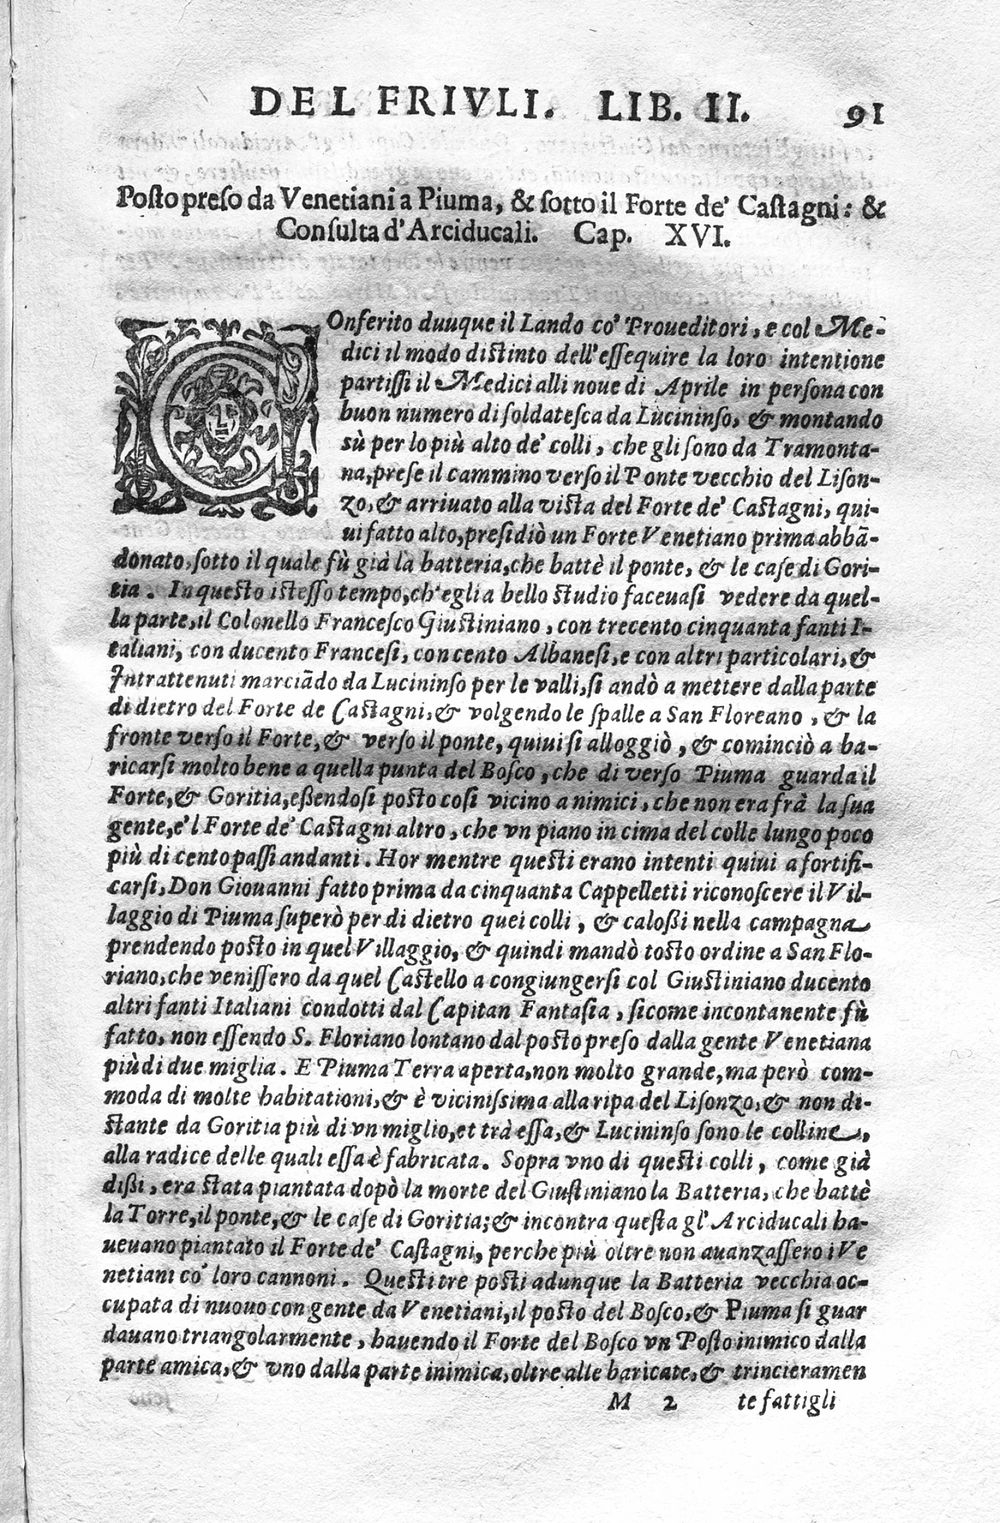 DEL FRIVLI. LIB. II. 91
Posto preso da Venetiani a Piuma, & sotto il Forte de' Castagni: &
Consulta d'Arciducali. Cap. XVI.
COnferito duuque il Lando co' Proueditori, e col Me-
dici il modo distinto dell'essequire la loro intentione
partissi il Medici alli noue di Aprile in persona con
buon numero di soldatesca da Lucininso, & montando
sù per lo più alto de' colli, che gli sono da Tramonta-
na, prese il cammino verso il Ponte vecchio del Lison-
zo, & arriuato alla vista del Forte de' Castagni, qui-
ui fatto alto, presidiò un Forte Venetiano prima abbã-
donato, sotto il quale fù già la batteria, che battè il ponte, & le case di Gori-
tia. In questo istesso tempo, ch'egli a bello studio faceuasi vedere da quel-
la parte, il Colonello Francesco Giustiniano, con trecento cinquanta fanti I-
taliani, con ducento Francesi, con cento Albanesi, e con altri particolari, &
Intrattenuti marciãdo da Lucininso per le valli, si andò a mettere dalla parte
di dietro del Forte de Castagni, & volgendo le spalle a San Floreano, & la
fronte verso il Forte, & verso il ponte, quiui si alloggiò, & cominciò a ba-
ricarsi molto bene a quella punta del Bosco, che di verso Piuma guarda il
Forte, & Goritia, eßendosi posto cosi vicino a nimici, che non era frà la sua
gente, e'l Forte de' Castagni altro, che vn piano in cima del colle lungo poco
più di cento passi andanti. Hor mentre questi erano intenti quiui a fortifi-
carsi, Don Giouanni fatto prima da cinquanta Cappelletti riconoscere il Vil-
laggio di Piuma superò per di dietro quei colli, & caloßi nella campagna
prendendo posto in quel Villaggio, & quindi mandò tosto ordine a San Flo-
riano, che venissero da quel Castello a congiungersi col Giustiniano ducento
altri fanti Italiani condotti dal Capitan Fantasia, sicome incontanente fù
fatto, non essendo S. Floriano lontano dal posto preso dalla gente Venetiana
più di due miglia. E Piuma Terra aperta, non molto grande, ma però com-
moda di molte habitationi, & è vicinissima alla ripa del Lisonzo, & non di-
stante da Goritia più di vn miglio, et trà essa, & Lucininso sono le colline,
alla radice delle quali essa è fabricata. Sopra vno di questi colli, come già
dißi, era stata piantata dopò la morte del Giustiniano la Batteria, che battè
la Torre, il ponte, & le case di Goritia; & incontra questa gl'Arciducali ha-
ueuano piantato il Forte de' Castagni, perche più oltre non auanzassero i Ve
netiani co' loro cannoni. Questi tre posti adunque la Batteria vecchia oc-
cupata di nuouo con gente da Venetiani, il posto del Bosco, & Piuma si guar
dauano triangolarmente, hauendo il Forte del Bosco vn Posto inimico dalla
parte amica, & vno dalla parte inimica, oltre alle baricate, & trincieramen
M 2 te fattigli